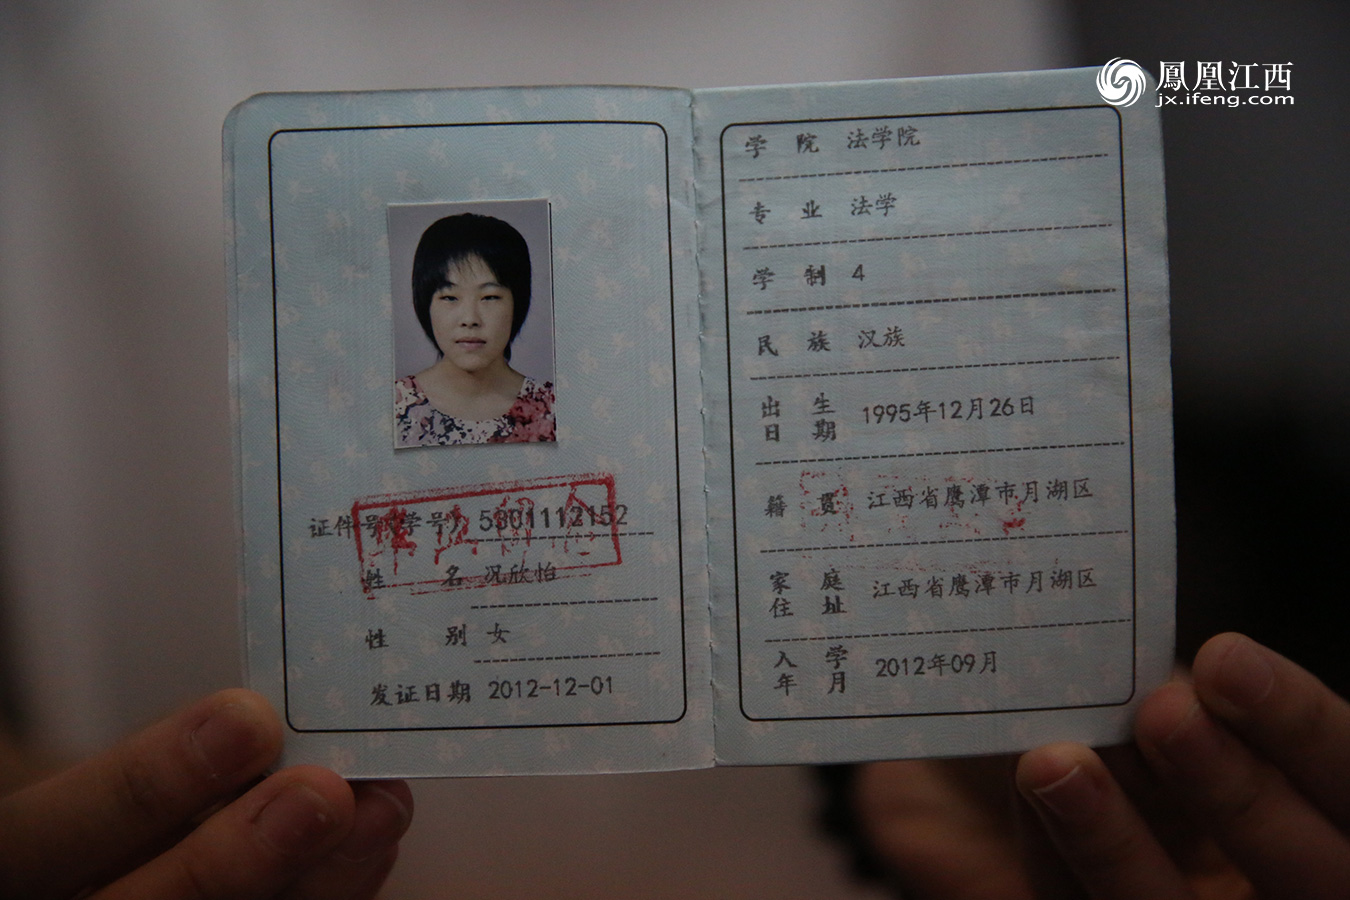 鳳凰江西
jx.ifeng.com
证件号(学号) 5301112152
姓 名 况欣怡
性 别 女
发证日期 2012-12-01
毕业留念
学 院 法学院
专 业 法学
学 制 4
民 族 汉族
出 生
日 期 1995年12月26日
籍 贯 江西省鹰潭市月湖区
家 庭
住 址 江西省鹰潭市月湖区
入 学
年 月 2012年09月